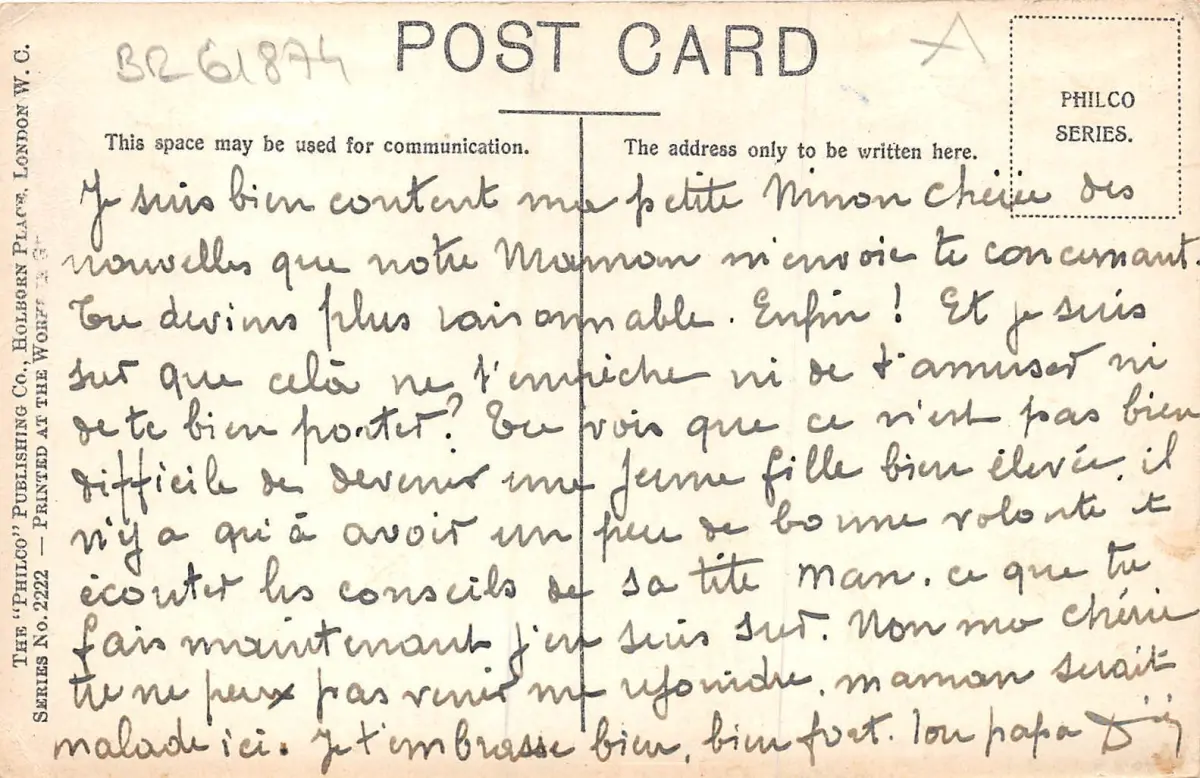 BR 61874
POST CARD
PHILCO
SERIES.
This space may be used for communication.
The address only to be written here.
THE "PHILCO" PUBLISHING CO., HOLBORN PLACE, LONDON W. C.
SERIES No. 2222 — PRINTED AT THE WORKS
Je suis bien content ma petite Ninon chérie des
nouvelles que notre Maman m'envoie te concernant.
Tu deviens plus raisonnable. Enfin ! Et je suis
sur que celà ne t'empêche ni de t'amuser ni
de te bien porter ? Tu vois que ce n'est pas bien
difficile de devenir une jeune fille bien élevée, il
n'y a qu'à avoir un peu de bonne volonté et
écouter les conseils de sa tite man. ce que tu
fais maintenant j'en suis sur. Non ma chérie
tu ne peux pas venir me rejoindre, maman serait
malade ici. Je t'embrasse bien, bien fort. Ton papa